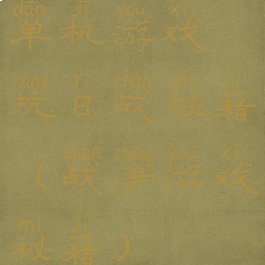 dān jī yóu xì
单机游戏
kàng rì zhàn mì jí
抗日战秘籍
zhàn zhēng yóu xì
（战争游戏
mì jí
秘籍）